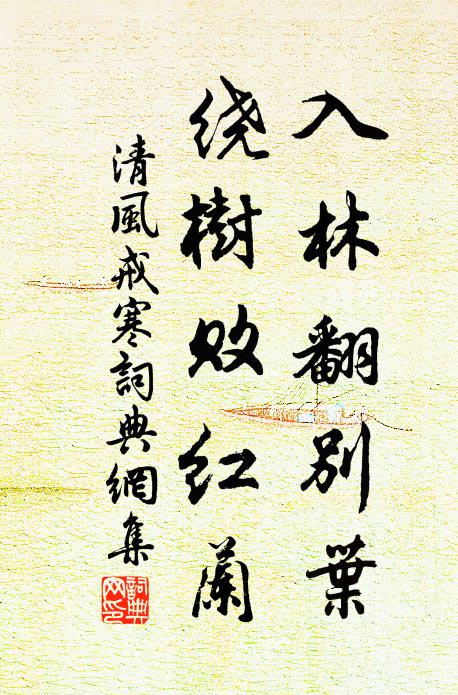 入林翻别葉
绕樹败红蘭
清風戒寒詞典網集
詞典
网印